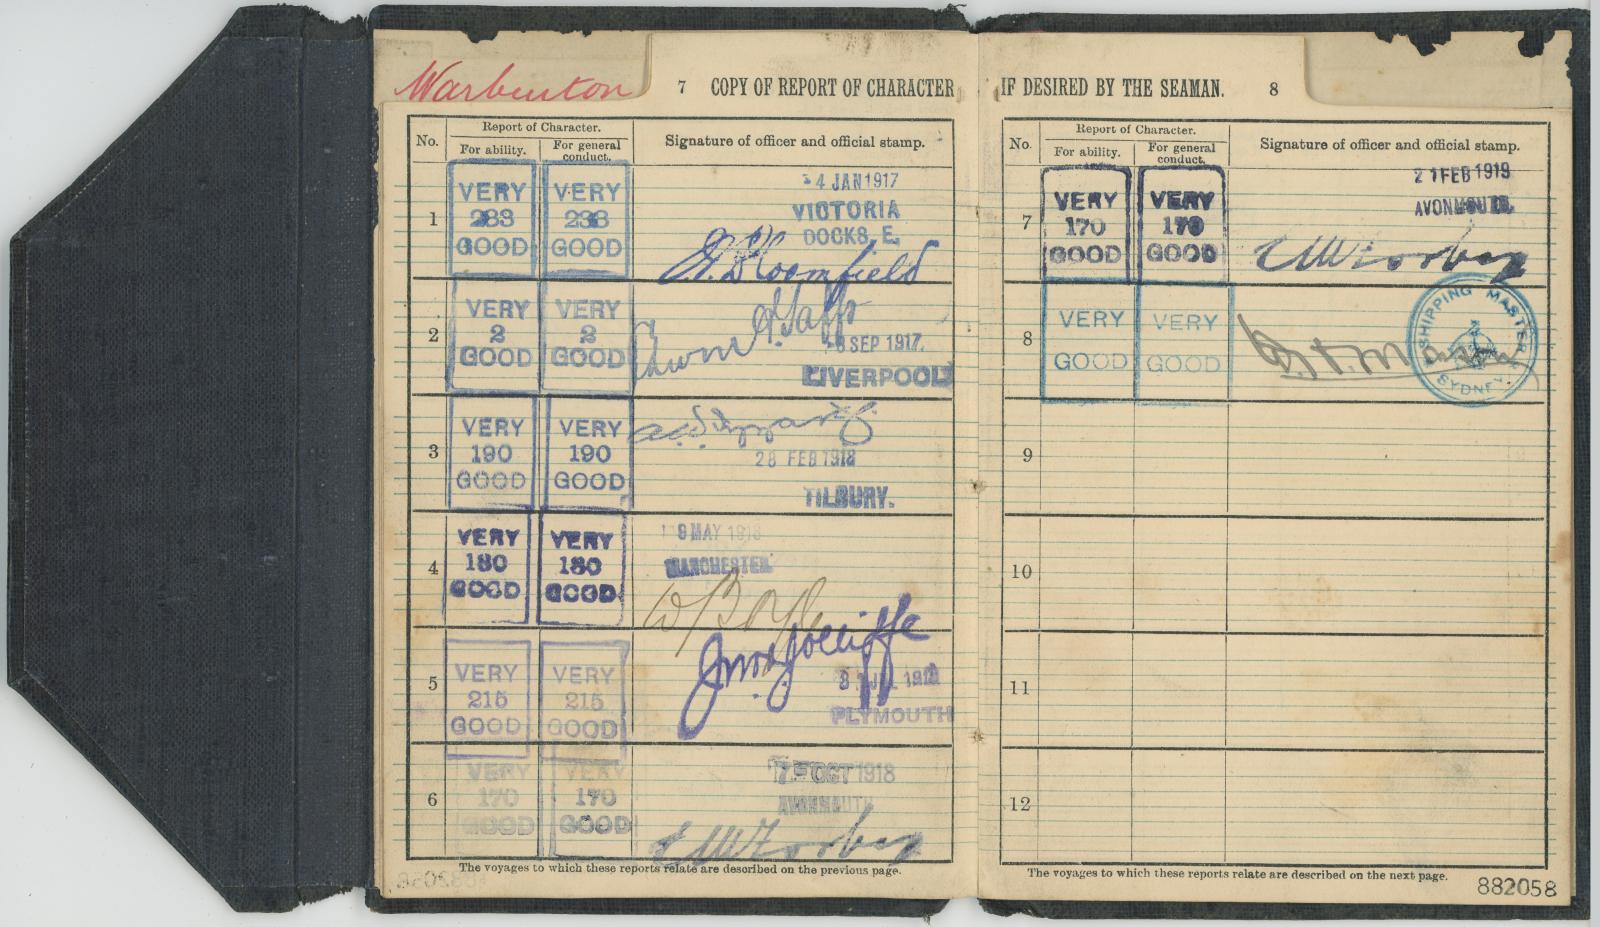 Warburton
7 COPY OF REPORT OF CHARACTER
No.
Report of Character.
For ability.
For general conduct.
Signature of officer and official stamp.
1
VERY
GOOD
VERY
238
GOOD
4 JAN 1917
VICTORIA
DOCKS, E.
Bloomfield
2
VERY
2
GOOD
VERY
2
GOOD
SEP 1917
LIVERPOOL
3
VERY
190
GOOD
VERY
190
GOOD
28 FEB 1918
TILBURY.
4
VERY
180
GOOD
VERY
180
GOOD
9 MAY 1918
MANCHESTER
W Boyle
5
VERY
215
GOOD
VERY
215
GOOD
Jolliffe
PLYMOUTH
6
VERY
170
GOOD
VERY
170
GOOD
7 OCT 1918
AVONMOUTH
The voyages to which these reports relate are described on the previous page.
IF DESIRED BY THE SEAMAN. 8
No.
Report of Character.
For ability.
For general conduct.
Signature of officer and official stamp.
7
VERY
170
GOOD
VERY
170
GOOD
21 FEB 1919
AVONMOUTH.
8
VERY
GOOD
VERY
GOOD
SHIPPING MASTER
SYDNEY
9
10
11
12
The voyages to which these reports relate are described on the next page.
882058